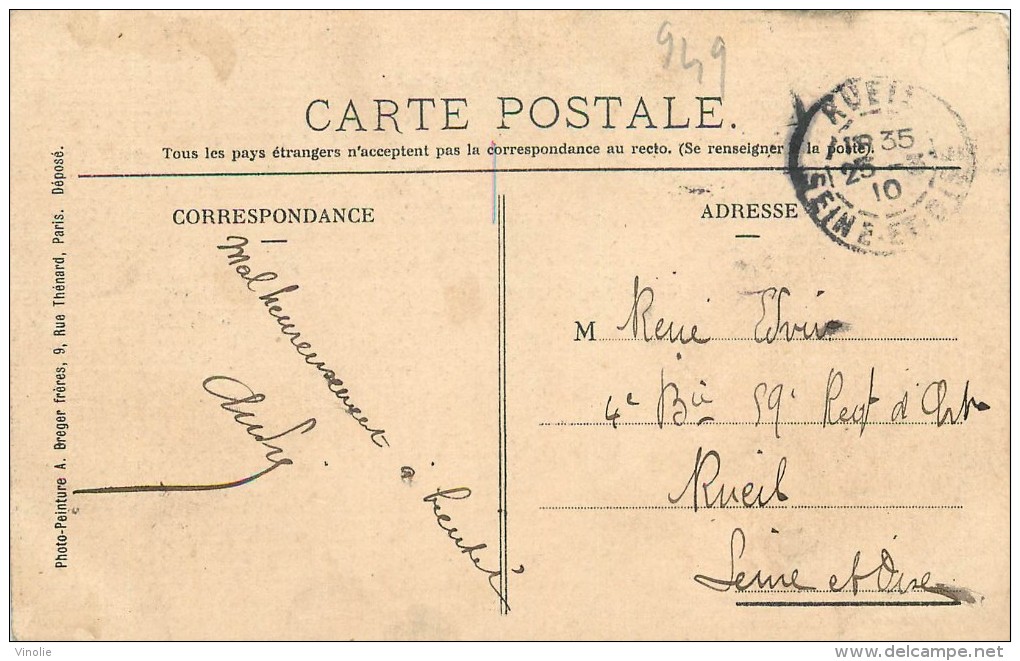 949
CARTE POSTALE.
Tous les pays étrangers n'acceptent pas la correspondance au recto. (Se renseigner à la poste).
RUEIL
35
23
10
SEINE-ET-OISE
CORRESPONDANCE
ADRESSE
Malheureusement à bientôt
André
M René
4e Bie 59e Regt d'Art
Rueil
Seine et Oise
Photo-Peinture A. Breger Frères, 9, Rue Thénard, Paris. Déposé.
Vinolie
delcampe.net